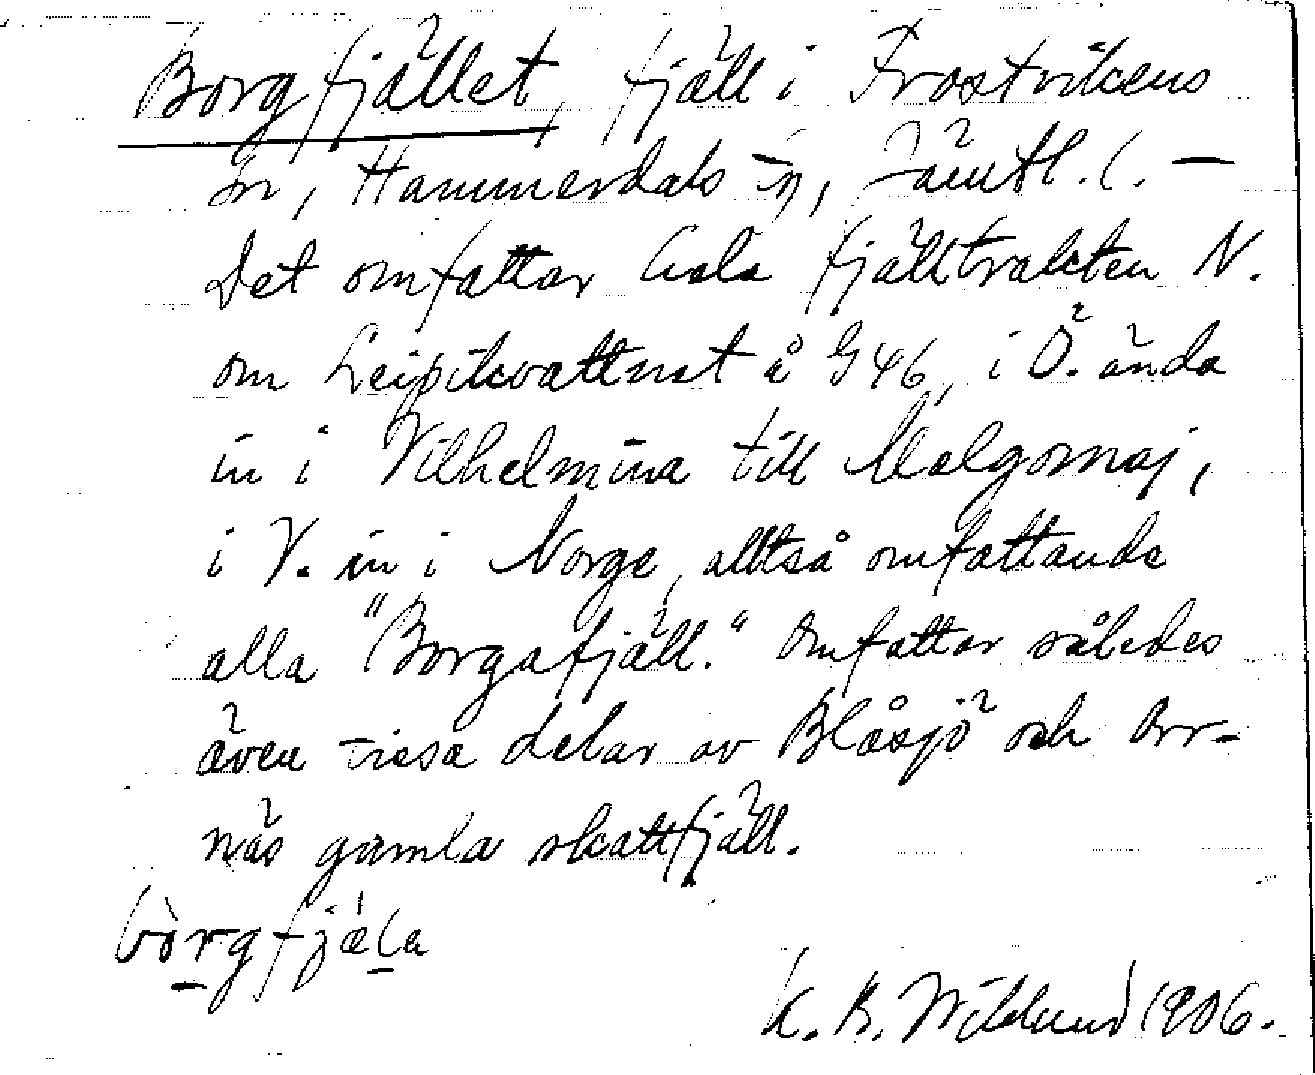 Borgfjället, fjäll i Frostvikens
sn, Hammerdals tg, Jämtl. l. —
Det omfattar hela fjälltrakten N.
om Leipikvattnet å G46, i Ö. ända
in i Vilhelmina till Malgomaj,
i V. in i Norge, alltså omfattande
alla "Borgafjäll." Omfattar således
även vissa delar av Blåsjö och Orr-
näs gamla skattfjäll.
bòrgfjæla
K. B. Wiklund 1906.